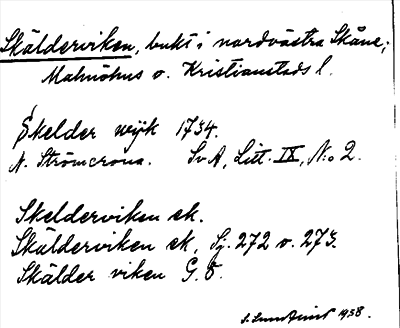 Skälderviken, bukt i nordvästra Skåne;
Malmöhus o. Kristianstads l.
Skelder wijk 1734.
N. Strömcrona. SvA, Litt. IX, N:o 2.
Skelderviken ek.
Skälderviken ek, Sj. 272 o. 273.
Skälder viken G. Ö.
1938.